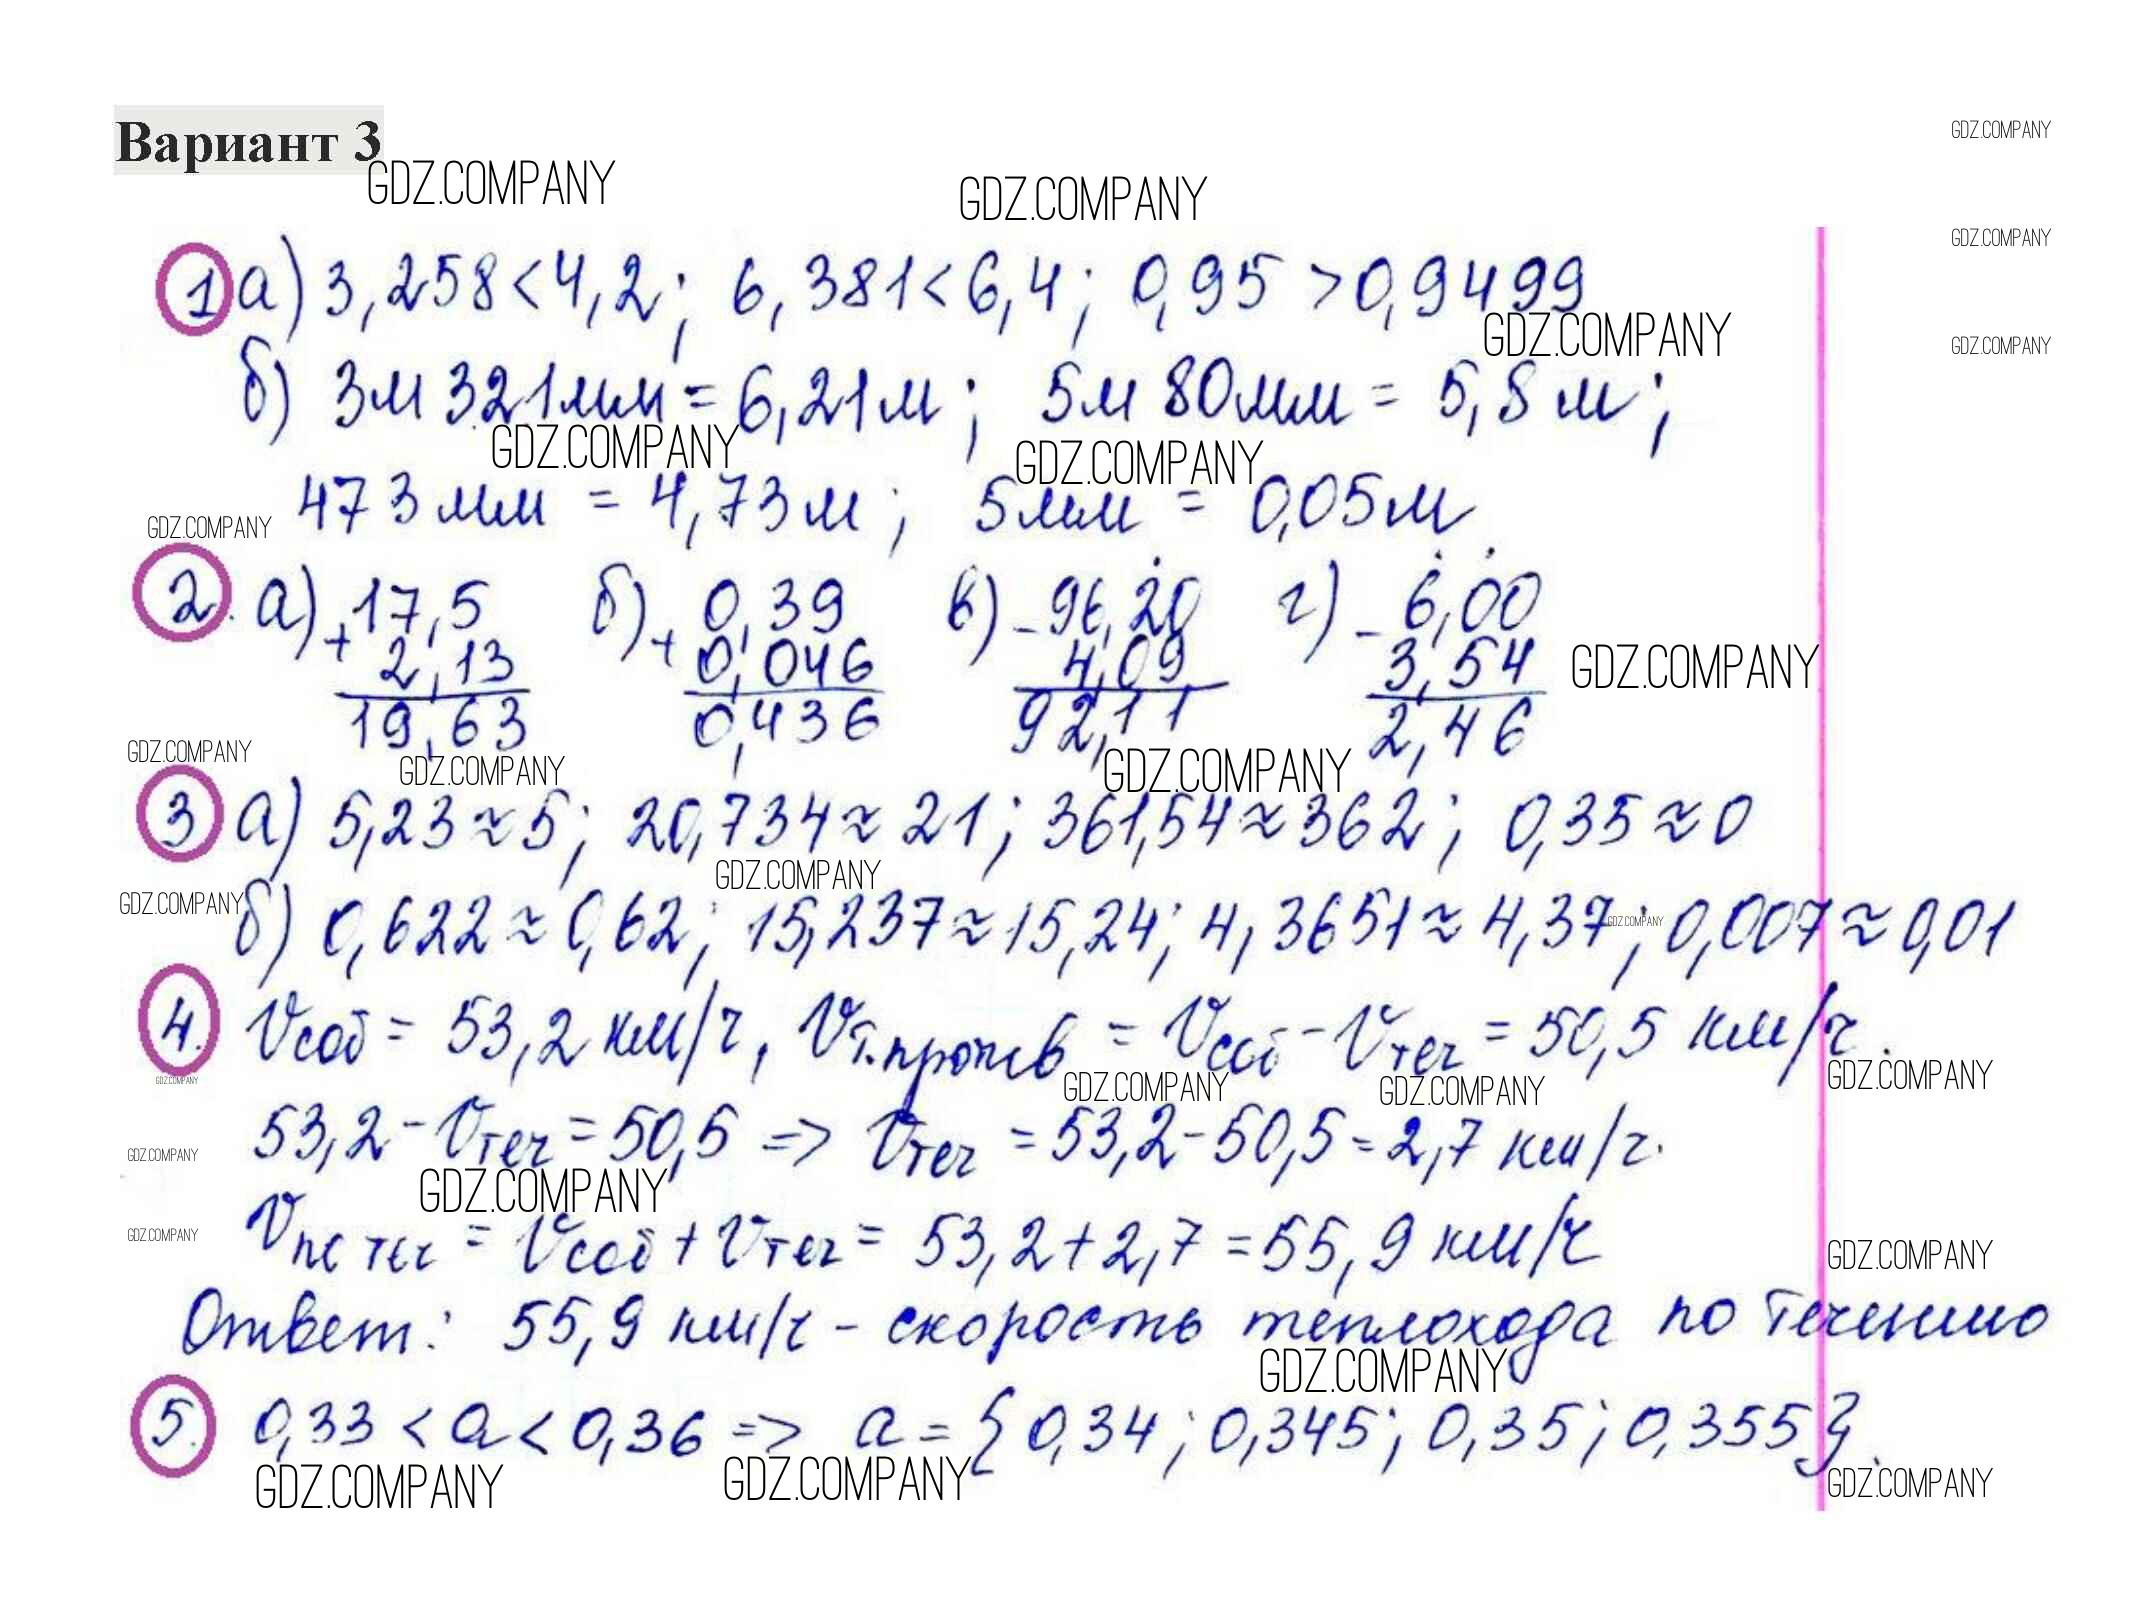 Вариант 3
GDZ.COMPANY
GDZ.COMPANY
GDZ.COMPANY
GDZ.COMPANY
1 а) 3,258 < 4,2; 6,381 < 6,4; 0,95 > 0,9499
GDZ.COMPANY
GDZ.COMPANY
б) 3м 321мм = 6,21м; 5м 80мм = 5,8м;
GDZ.COMPANY
GDZ.COMPANY
473мм = 4,73м; 5мм = 0,05м
GDZ.COMPANY
2. а) + 17,5 б) + 0,39 в) - 96,20 г) - 6,00
2,13 0,046 4,09 3,54
GDZ.COMPANY
19,63 0,436 92,11 2,46
GDZ.COMPANY
GDZ.COMPANY
GDZ.COMPANY
3 а) 5,23 ≈ 5; 20,734 ≈ 21; 361,54 ≈ 362; 0,35 ≈ 0
GDZ.COMPANY
GDZ.COMPANY
б) 0,622 ≈ 0,62; 15,237 ≈ 15,24; 4,3651 ≈ 4,37; 0,007 ≈ 0,01
GDZ.COMPANY
4. Vсоб = 53,2 км/ч, Vт.против = Vсоб - Vтеч = 50,5 км/ч.
GDZ.COMPANY
GDZ.COMPANY
GDZ.COMPANY
GDZ.COMPANY
53,2 - Vтеч = 50,5 => Vтеч = 53,2 - 50,5 = 2,7 км/ч.
GDZ.COMPANY
GDZ.COMPANY
Vпо теч = Vсоб + Vтеч = 53,2 + 2,7 = 55,9 км/ч
GDZ.COMPANY
GDZ.COMPANY
Ответ: 55,9 км/ч - скорость теплохода по течению
GDZ.COMPANY
5. 0,33 < а < 0,36 => а = {0,34; 0,345; 0,35; 0,355}.
GDZ.COMPANY
GDZ.COMPANY
GDZ.COMPANY